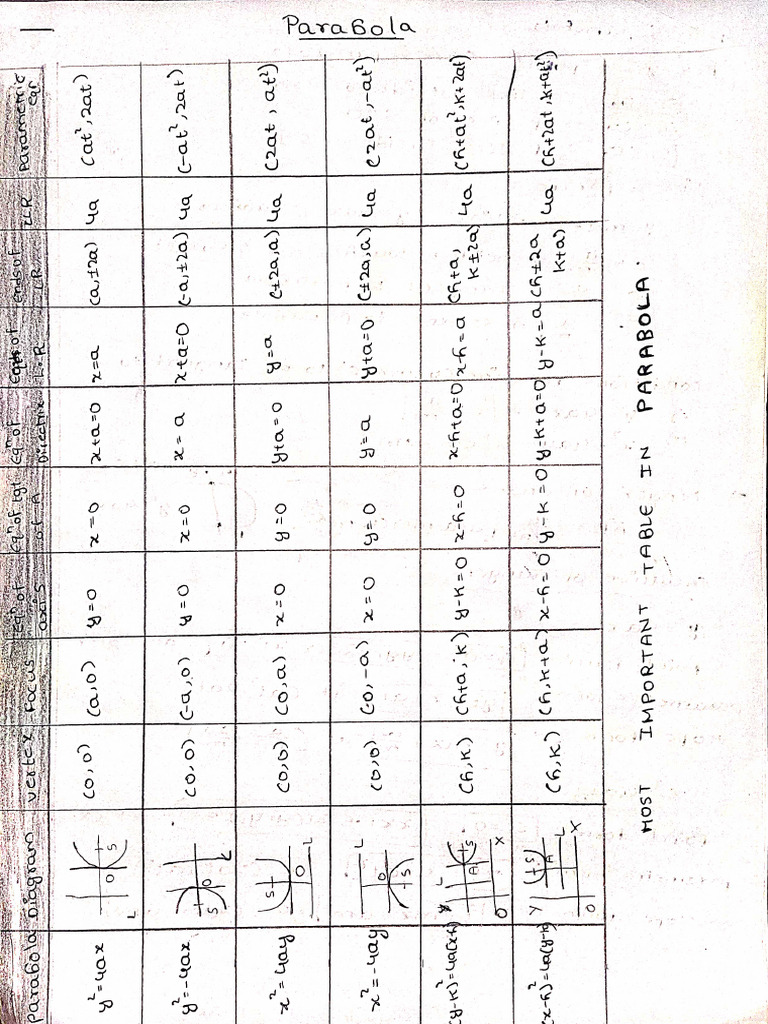 Parabola
Parabola Diagram vertex Focus Eqⁿ of axis Eqⁿ of tgt of A Eqⁿ of Directrix Eqⁿ of L.R ends of LR LLR Parametric Eqⁿ
y²=4ax O S L (0,0) (a,0) y=0 x=0 x+a=0 x=a (a,±2a) 4a (at²,2at)
y²=-4ax S O L (0,0) (-a,0) y=0 x=0 x=a x+a=0 (-a,±2a) 4a (-at²,2at)
x²=4ay S O L (0,0) (0,a) x=0 y=0 y+a=0 y=a (±2a,a) 4a (2at, at²)
x²=-4ay L O S (0,0) (0,-a) x=0 y=0 y=a y+a=0 (±2a,a) 4a (2at,-at²)
(y-k)²=4a(x-h) Y L A S O X (h,k) (h+a,k) y-k=0 x-h=0 x-h+a=0 x-h=a (h+a, k±2a) 4a (h+at²,k+2at)
(x-h)²=4a(y-k) Y S A L O X (h,k) (h,k+a) x-h=0 y-k=0 y-k+a=0 y-k=a (h±2a k+a) 4a (h+2at,k+at²)
MOST IMPORTANT TABLE IN PARABOLA.